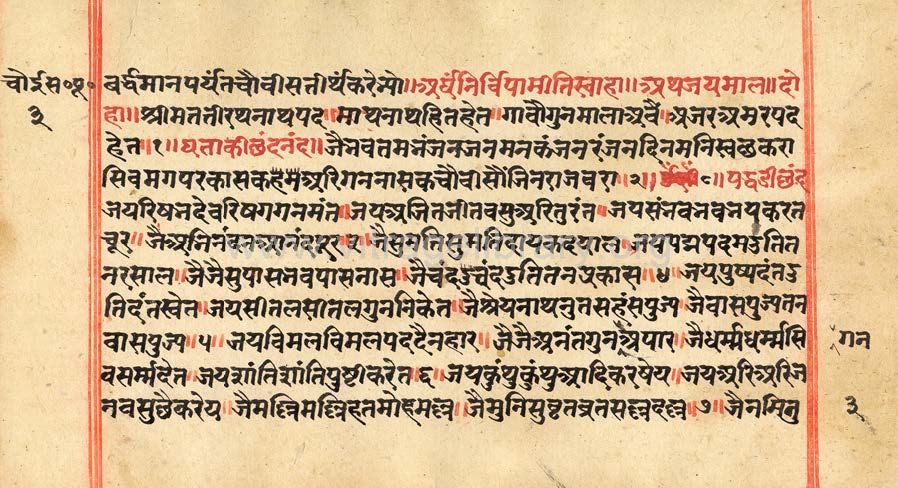 चौईस॰पू॰ बर्द्धमानपर्यंतचौवीसतीर्थंकरेभ्यो॥अर्घंनिर्विपामीतिस्वाहा॥अथजयमाल॥दो
३ हा॥श्रीमततीरथनाथपद॥माथनाथहितहेत॥गावौगुनमालाअवै॥अजरअमरपद
हेत॥१॥घताकीछंदनंदा॥जैभवतमभंजनजनमनकंजनरंजनदिनमनिस्वछकरा
सिवमगपरकासकहमअरिगननासकचौवीसौंजिनराजवरा॥२॥ पद्धडीछंद
जयरिषभदेवरिषगगनमंत॥जयअजितजीतवसुअरितुरंत॥जयसंभवभवभयकरत
चूर॥जैअभिनंदनआनंदपूर॥३॥जैसुमतिसुमतिदायकदयाल॥जयपद्मपदमऽतित
नरसाल॥जैजैसुपासभवपासनास॥जैचंदऽतितनप्रकास॥४॥जयपुष्पदंतऽ
तिदंतस्वेत॥जयसीतलसीतलगुननिकेत॥जैश्रेयनाथनुतसहंसपुज्य॥जैवासपुज्यतन
वासपुज्य॥५॥जयविमलविमलपददैनहार॥जैजैअनंतगुनअपार॥जैधर्म्मधर्म्मसि गन
वसर्म्मदेत॥जयशांतिशांतिपुष्टीकरेत॥६॥जयकुंथुकुंथुआदिकरषेय॥जयअरिअरिज
नवसुछैकरेय॥जैमल्लिमल्लिहतमोहमल्ल॥जैमुनिसुव्रतव्रतसल्लदल्ल॥७॥जैनमितु ३